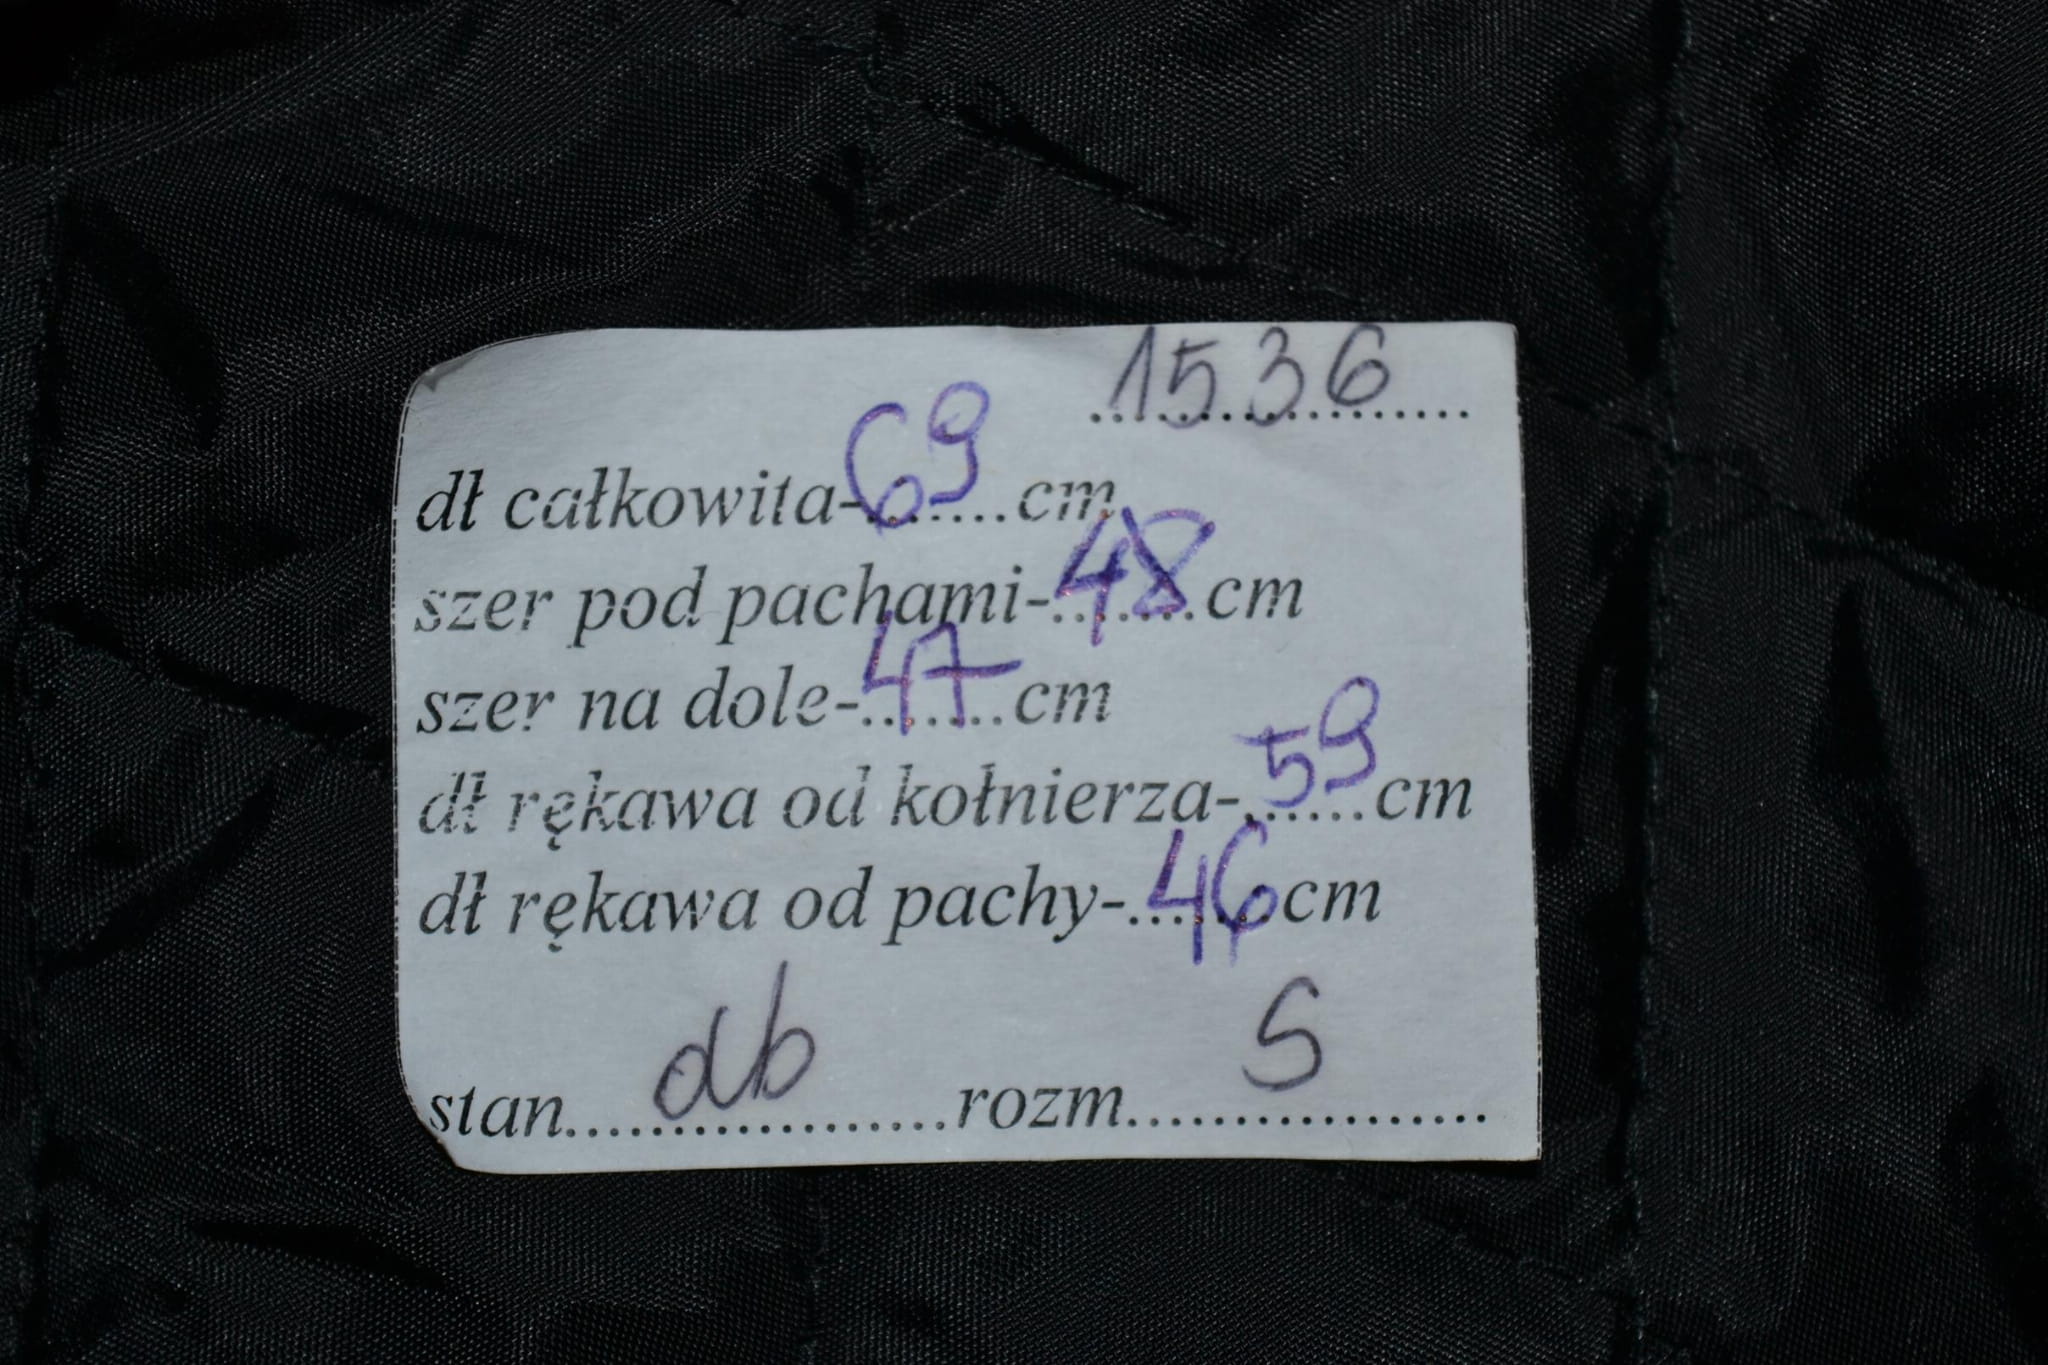 1536
dł całkowita-69cm
szer pod pachami-48cm
szer na dole-47cm
dł rękawa od kołnierza-59cm
dł rękawa od pachy-46cm
stan db rozm S